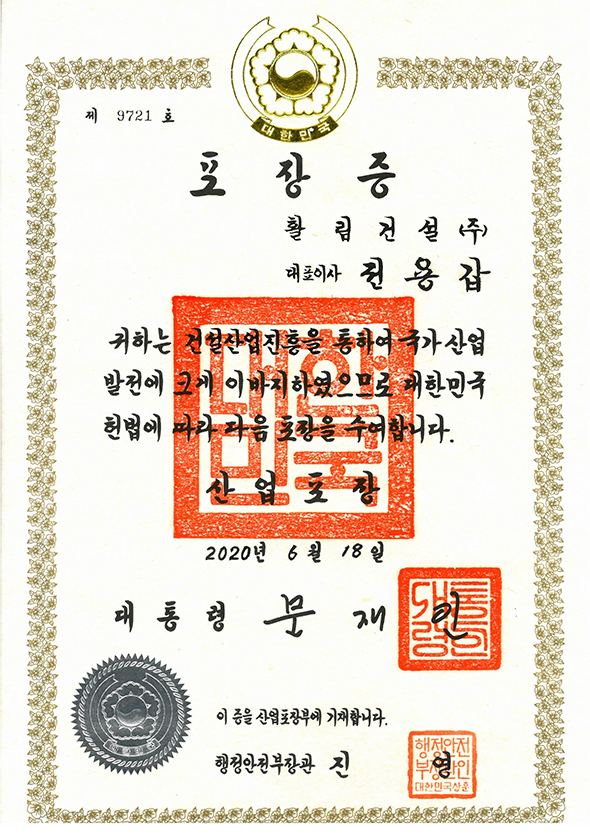 대한민국
제 9721 호
포장증
활림건설(주)
대표이사 전용갑
귀하는 건설산업진흥을 통하여 국가산업
발전에 크게 이바지하였으므로 대한민국
헌법에 따라 다음 포장을 수여합니다.
대한민국
산업포장
2020년 6월 18일
대통령 문재인
대통령의인
대한민국
이 증을 산업포장부에 기재합니다.
행정안전부장관 진영
행정안전
부장관인
대한민국상훈